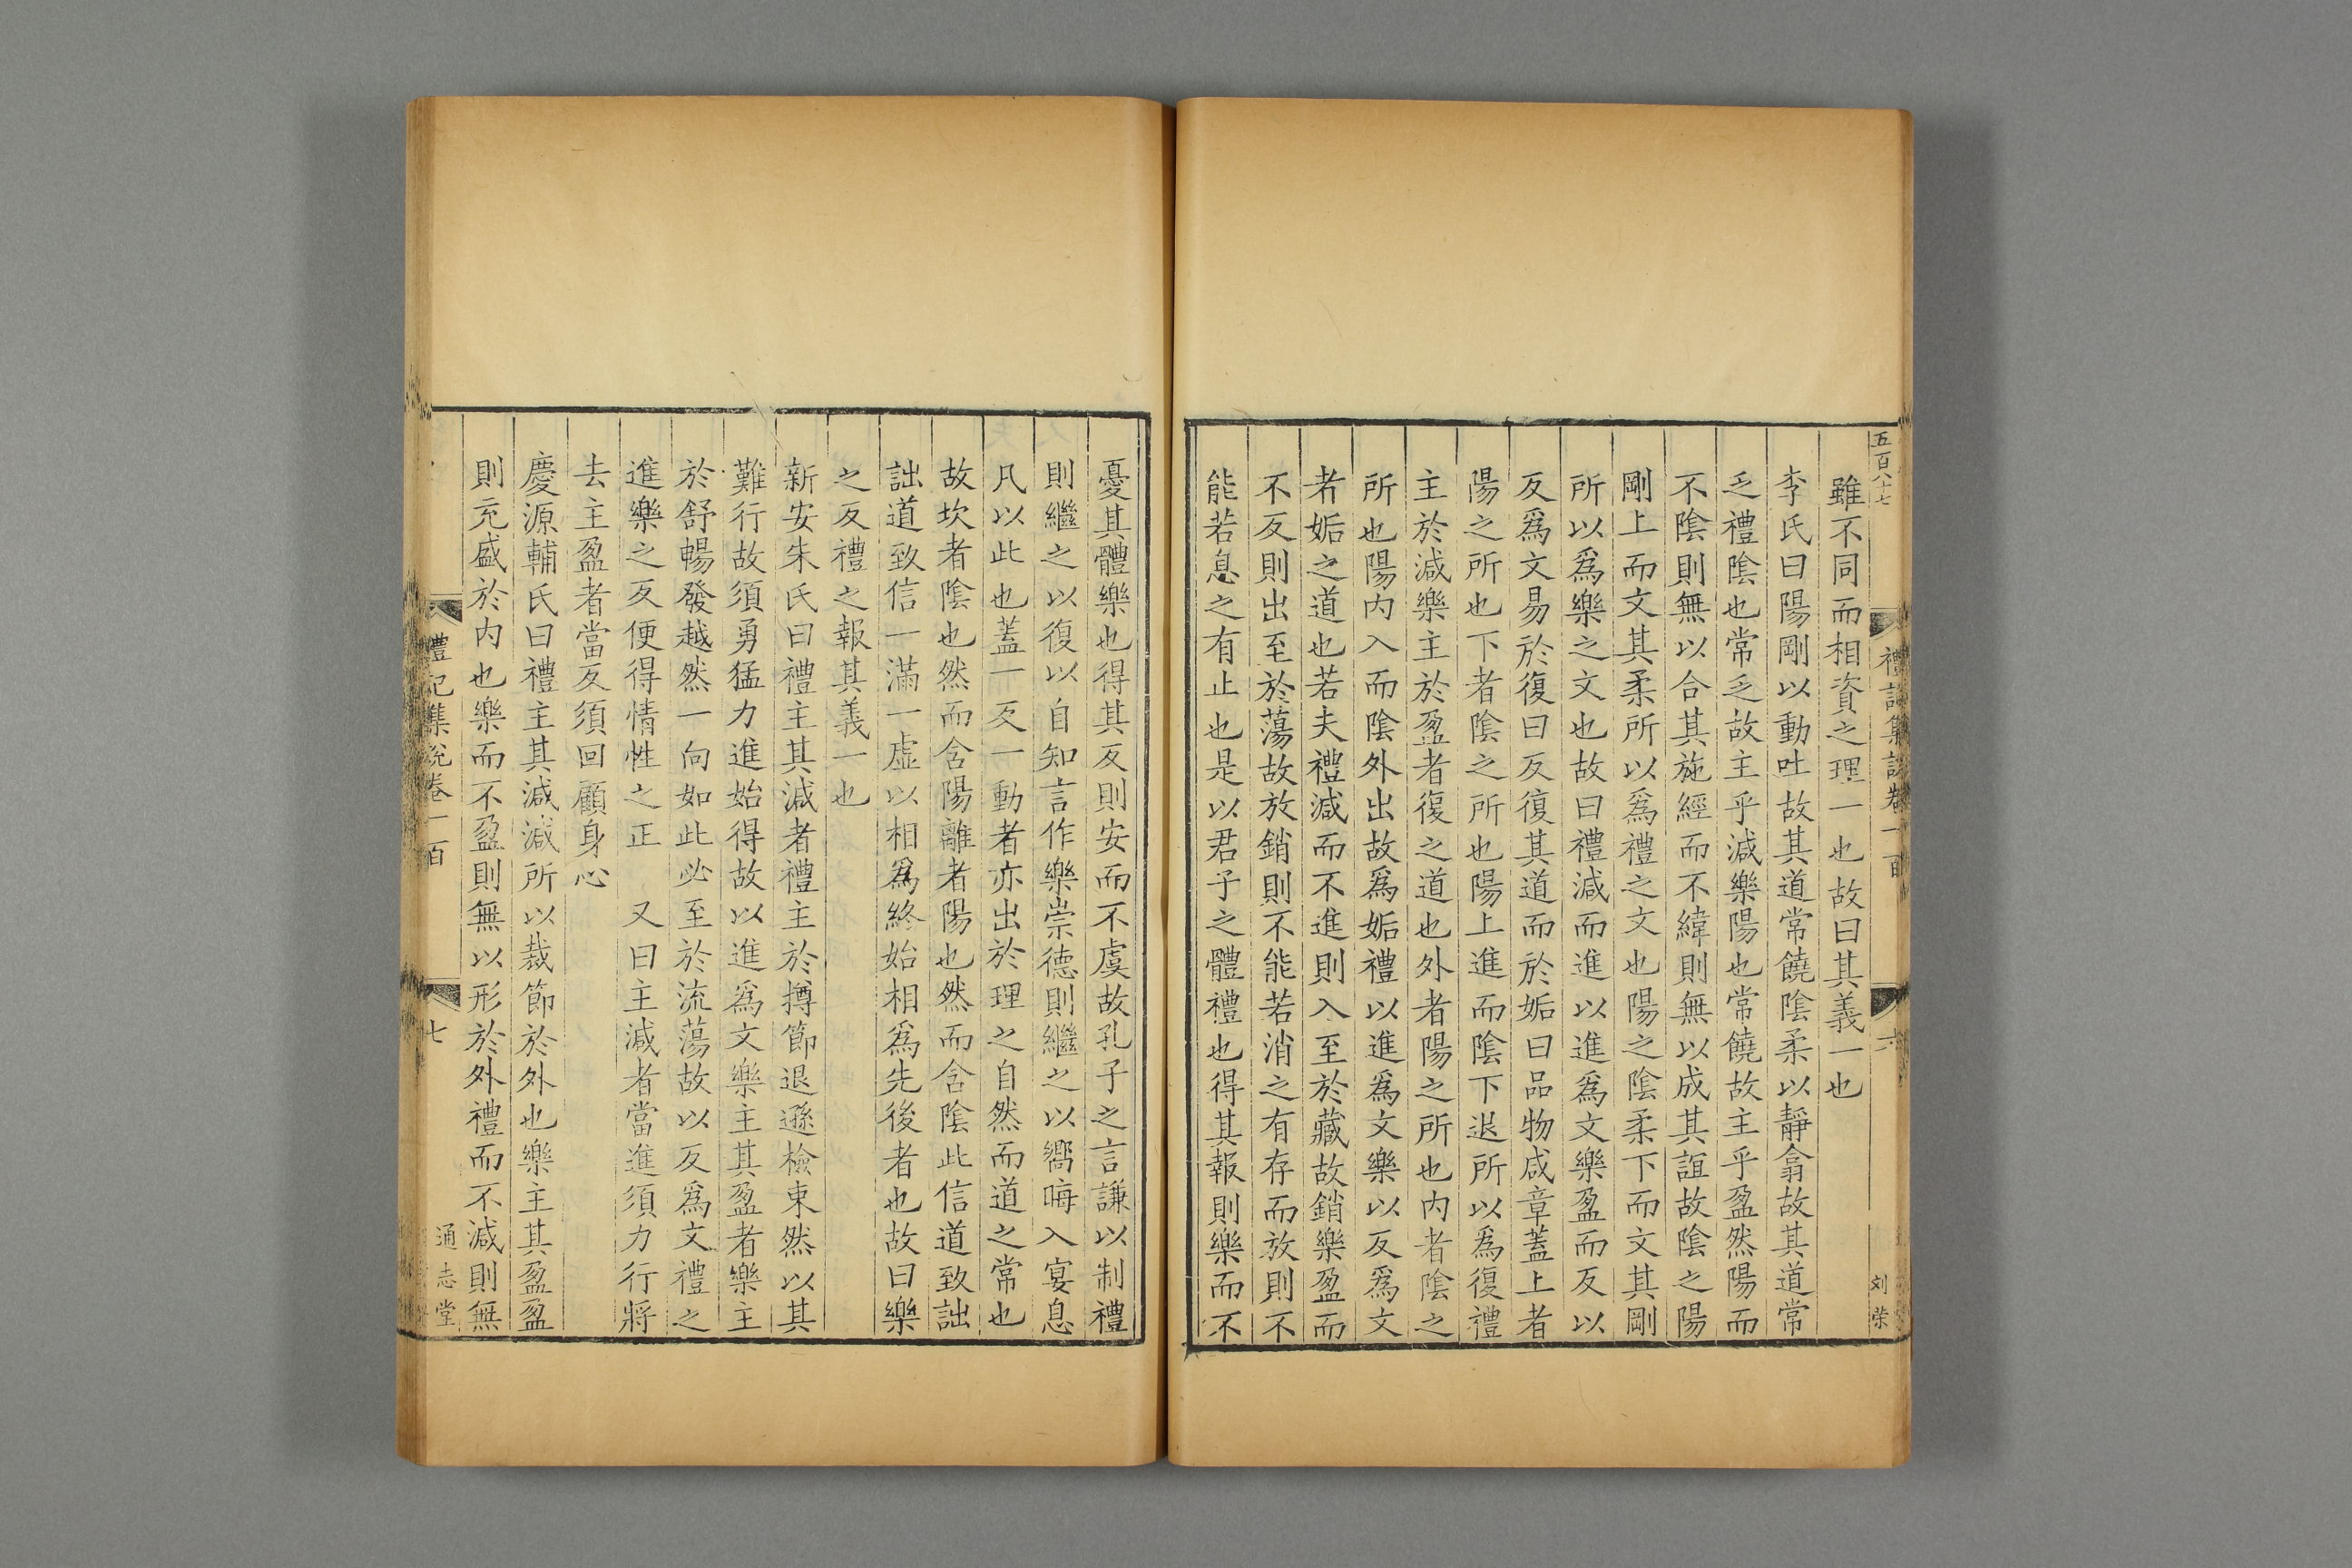 五百八十七
禮記集説卷一百
六
刘荣
雖不同而相資之理一也故曰其義一也
李氏曰陽剛以動吐故其道常饒陰柔以靜翕故其道常
乏禮陰也常乏故主乎減樂陽也常饒故主乎盈然陽而
不陰則無以合其施經而不緯則無以成其誼故陰之陽
剛上而文其柔所以爲禮之文也陽之陰柔下而文其剛
所以爲樂之文也故曰禮減而進以進爲文樂盈而反以
反爲文易於復曰反復其道而於姤曰品物咸章蓋上者
陽之所也下者陰之所也陽上進而陰下退所以爲復禮
主於減樂主於盈者復之道也外者陽之所也内者陰之
所也陽内入而陰外出故爲姤禮以進爲文樂以反爲文
者姤之道也若夫禮減而不進則入至於藏故銷樂盈而
不反則出至於蕩故放銷則不能若消之有存而放則不
能若息之有止也是以君子之體禮也得其報則樂而不
憂其體樂也得其反則安而不虞故孔子之言謙以制禮
則繼之以復以自知言作樂崇德則繼之以嚮晦入宴息
凡以此也蓋一反一動者亦出於理之自然而道之常也
故坎者陰也然而含陽離者陽也然而含陰此信道致詘
詘道致信一滿一虛以相爲終始相爲先後者也故曰樂
之反禮之報其義一也
新安朱氏曰禮主其減者禮主於撙節退遜檢束然以其
難行故須勇猛力進始得故以進爲文樂主其盈者樂主
於舒暢發越然一向如此必至於流蕩故以反爲文禮之
進樂之反便得情性之正 又曰主減者當進須力行將
去主盈者當反須回顧身心
慶源輔氏曰禮主其減減所以裁節於外也樂主其盈盈
則充盛於内也樂而不盈則無以形於外禮而不減則無
禮記集説卷一百
七
通志堂